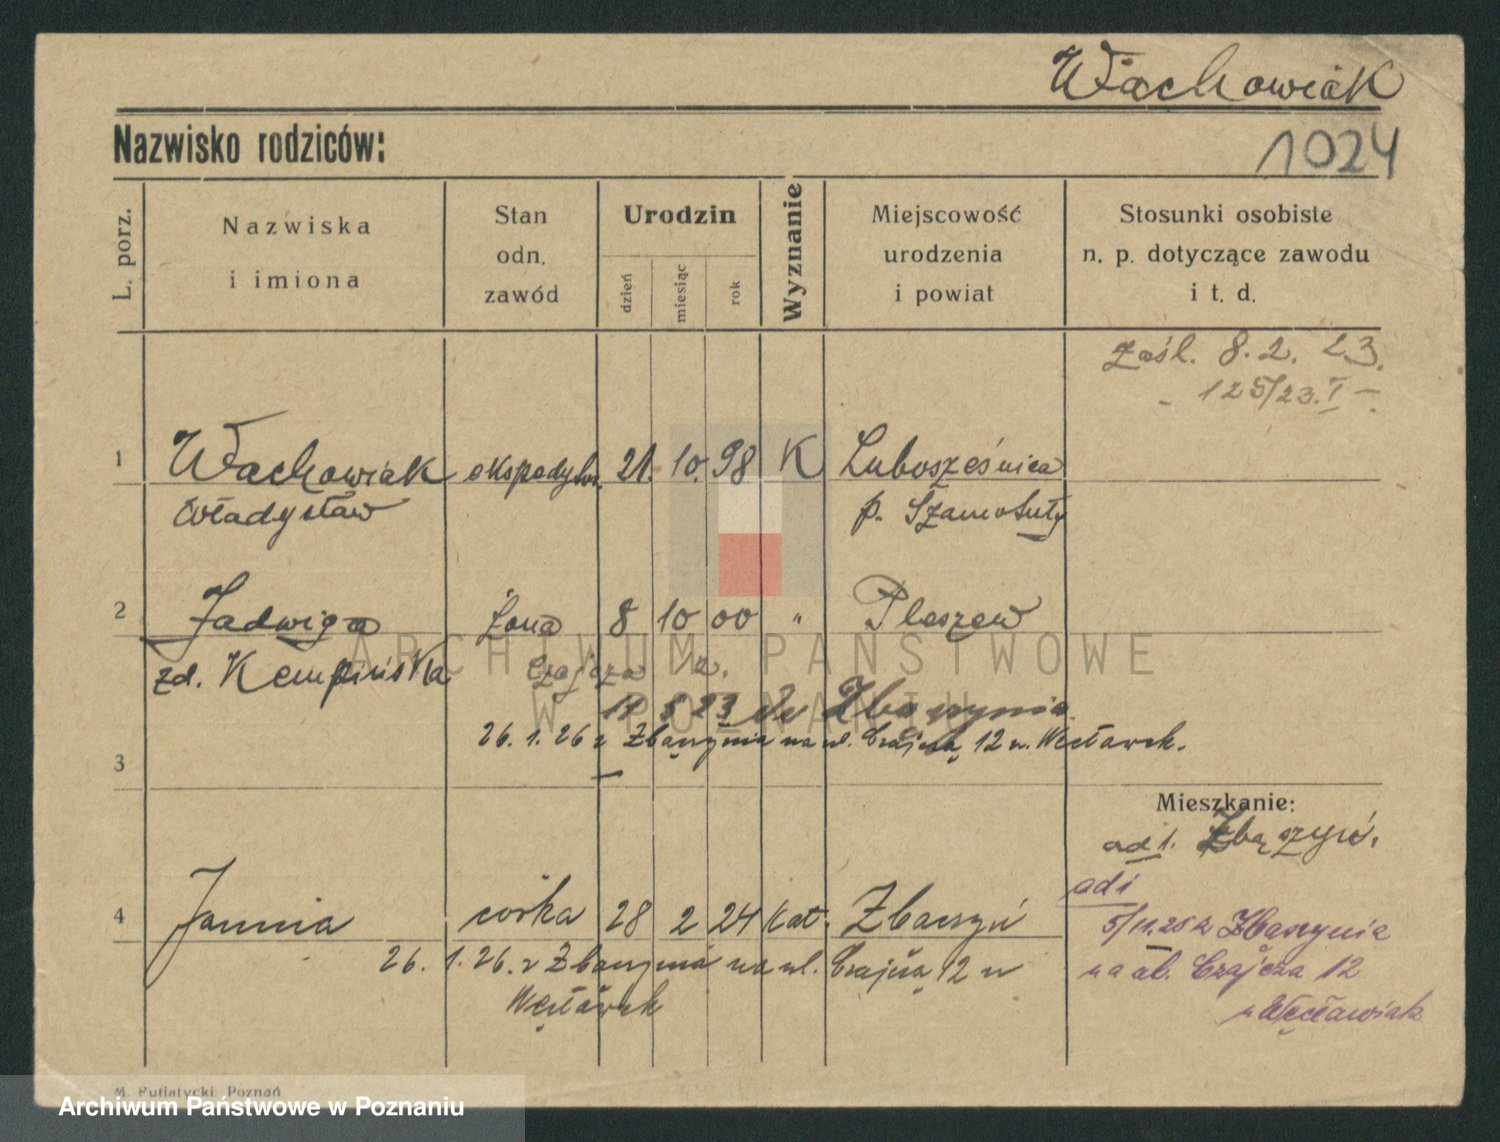 Wachowiak
Nazwisko rodziców:
1024
L. porz.
Nazwiska
i imiona
Stan
odn.
zawód
Urodzin
dzień
miesiąc
rok
Wyznanie
Miejscowość
urodzenia
i powiat
Stosunki osobiste
n. p. dotyczące zawodu
i t. d.
Zaśl. 8. 2. 23.
125/23. I
1 Wachowiak ekspedytor. 21. 10. 98 K Lubosześnica
Władysław p. Szamotuły
2 Jadwiga żona 8 10 00 " Pleszew
zd. Kempińska Czajcza 12.
11 5 23 do Zbąszynia
26. 1. 26 z Zbąszynia na ul. Czajczą 12 u. Węcławek.
3
Mieszkanie:
ad 1. Zbąszyń.
4 Janina córka 28 2 24 kat. Zbąszyń
ad 1
5/11. 25 z Zbąszynia
26. 1. 26. z Zbąszynia na ul. Czajczą 12 u
na ul. Czajcza 12
Węcławek
u Węcławiak
M. Putiatycki, Poznań
ARCHIWUM PAŃSTWOWE
W POZNANIU
Archiwum Państwowe w Poznaniu